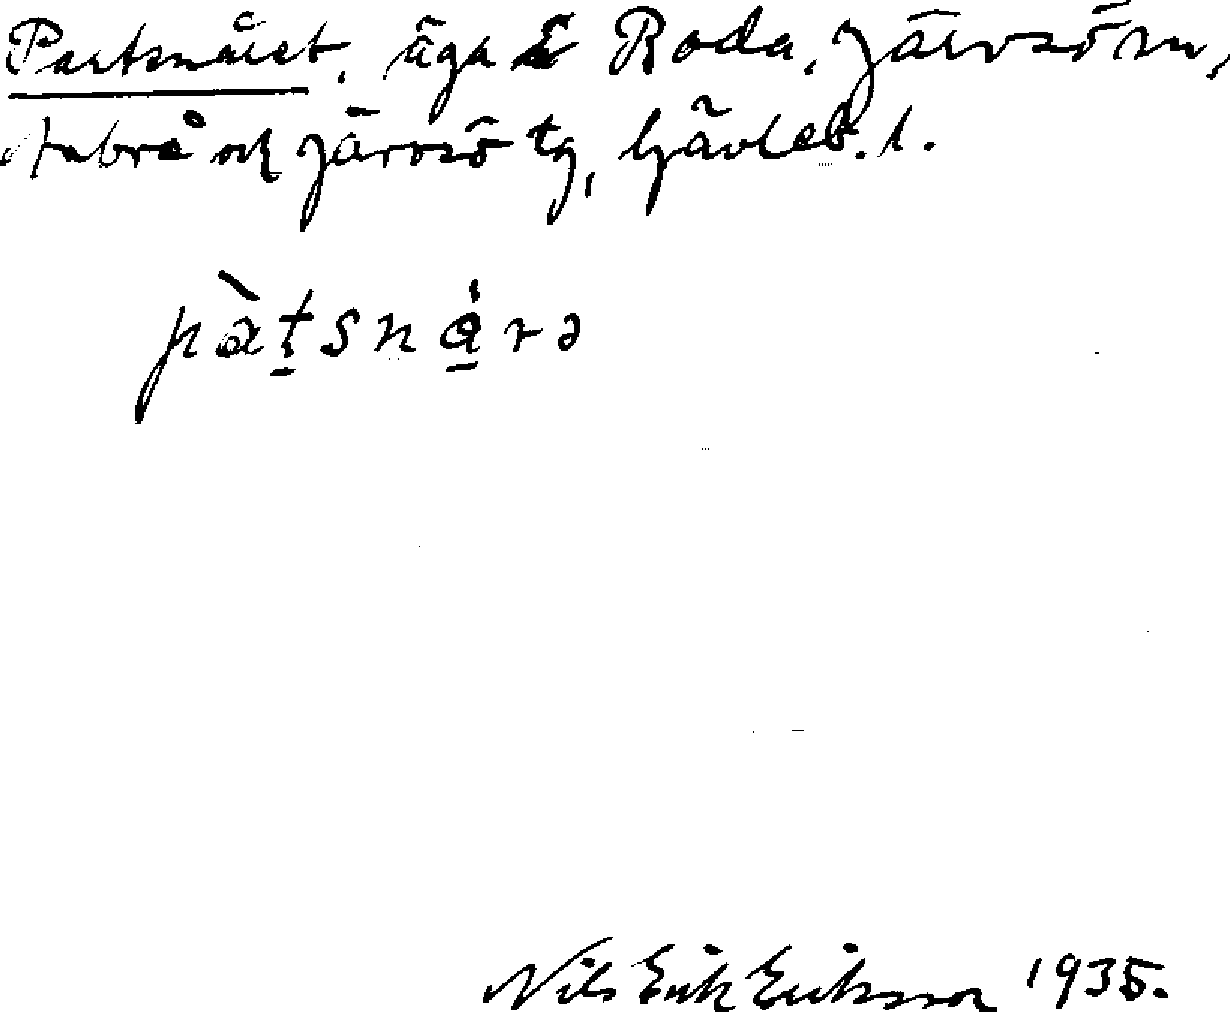 Partsnåret, äga Roda, Järvsö sn,
Arbrå och Järvsö tg, Gävleb. l.
pàt̠snȧ̠rə
Nils Erik Eriksson 1935.